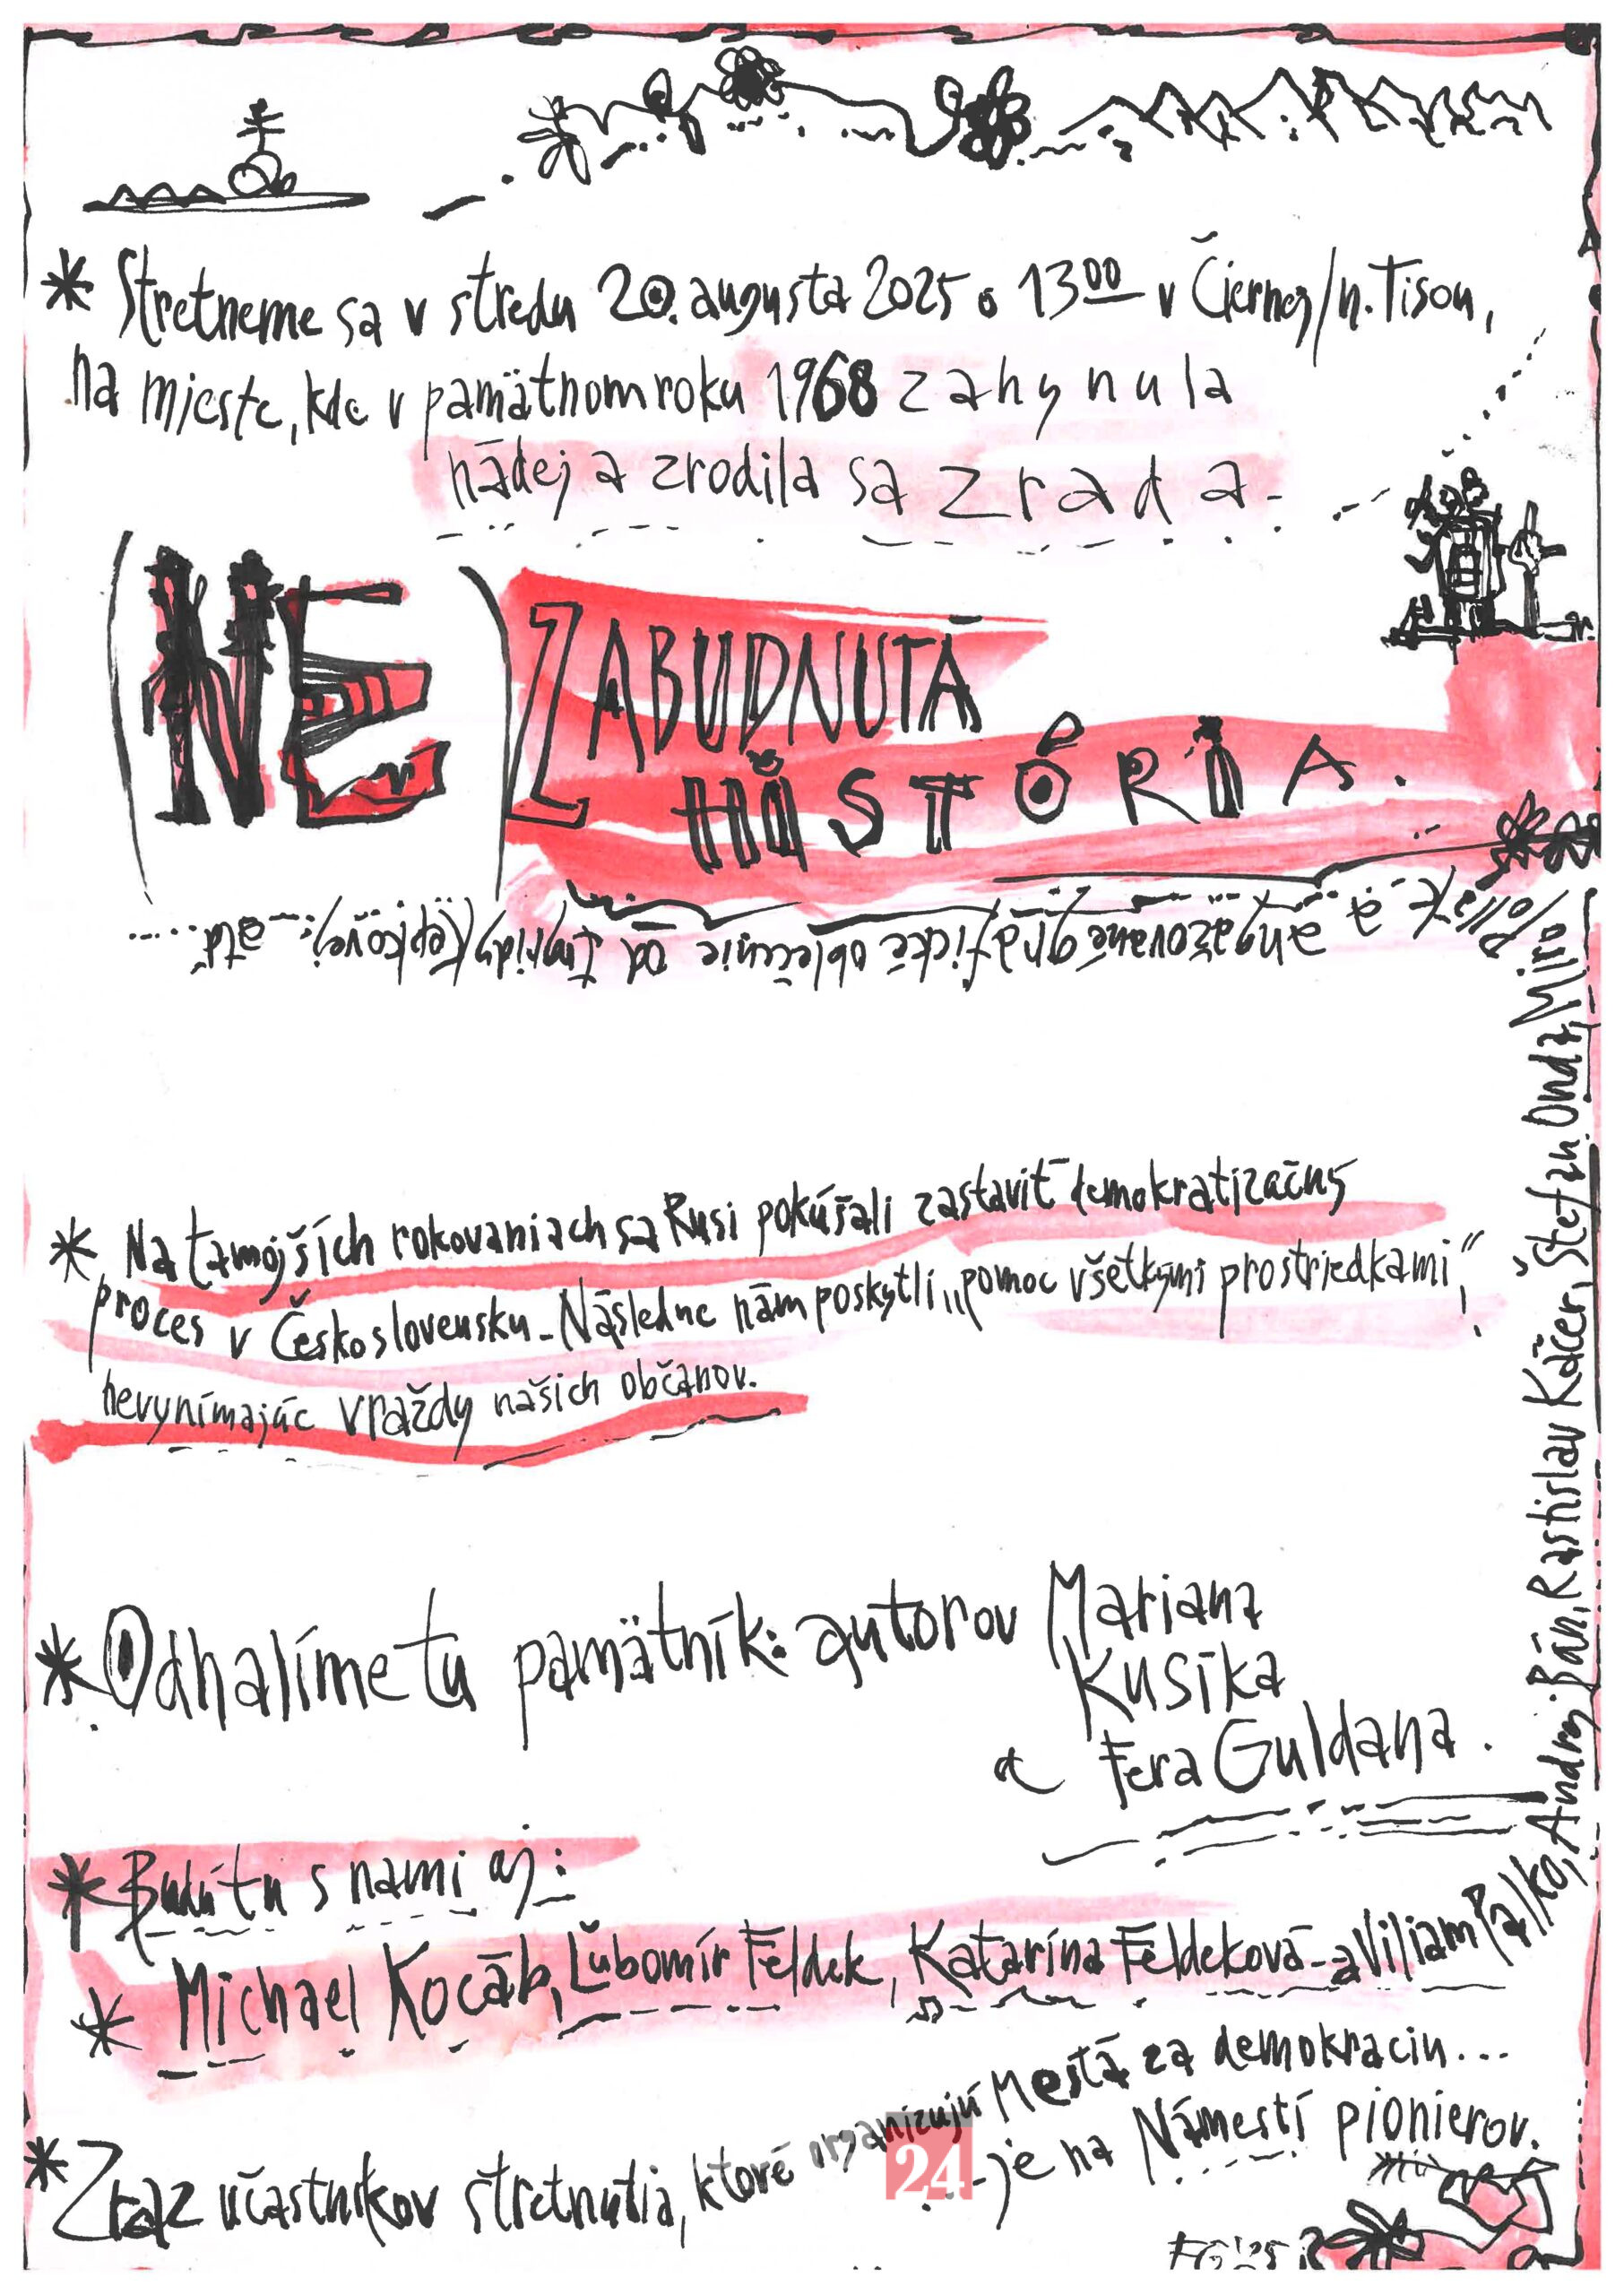 * Stretneme sa v stredu 20. augusta 2025 o 1300 v Čiernej/n. Tisou,
na mieste, kde v pamätnom roku 1968 zahynula
nádej a zrodila sa zrada.
(NE) ZABUDNUTÁ
HISTÓRIA.
* Na tamojších rokovaniach sa Rusi pokúšali zastaviť demokratizačný
proces v Československu. Následne nám poskytli „pomoc všetkými prostriedkami“,
nevynímajúc vraždy našich občanov.
* Odhalíme tu pamätník: autorov Mariana
Kusíka
a Fera Guldana.
* Budú tu s nami aj:
* Michael Kocáb, Ľubomír Feldek, Katarína Feldeková a Viliam Palko, Andrej Bán, Rastislav Káčer, Štefan Onda, Miro Pollák
a angažované grafické oblečenie od
* Zraz účastníkov stretnutia, ktoré organizujú Mestá za demokraciu...
je na Námestí pionierov.
24
FG'25